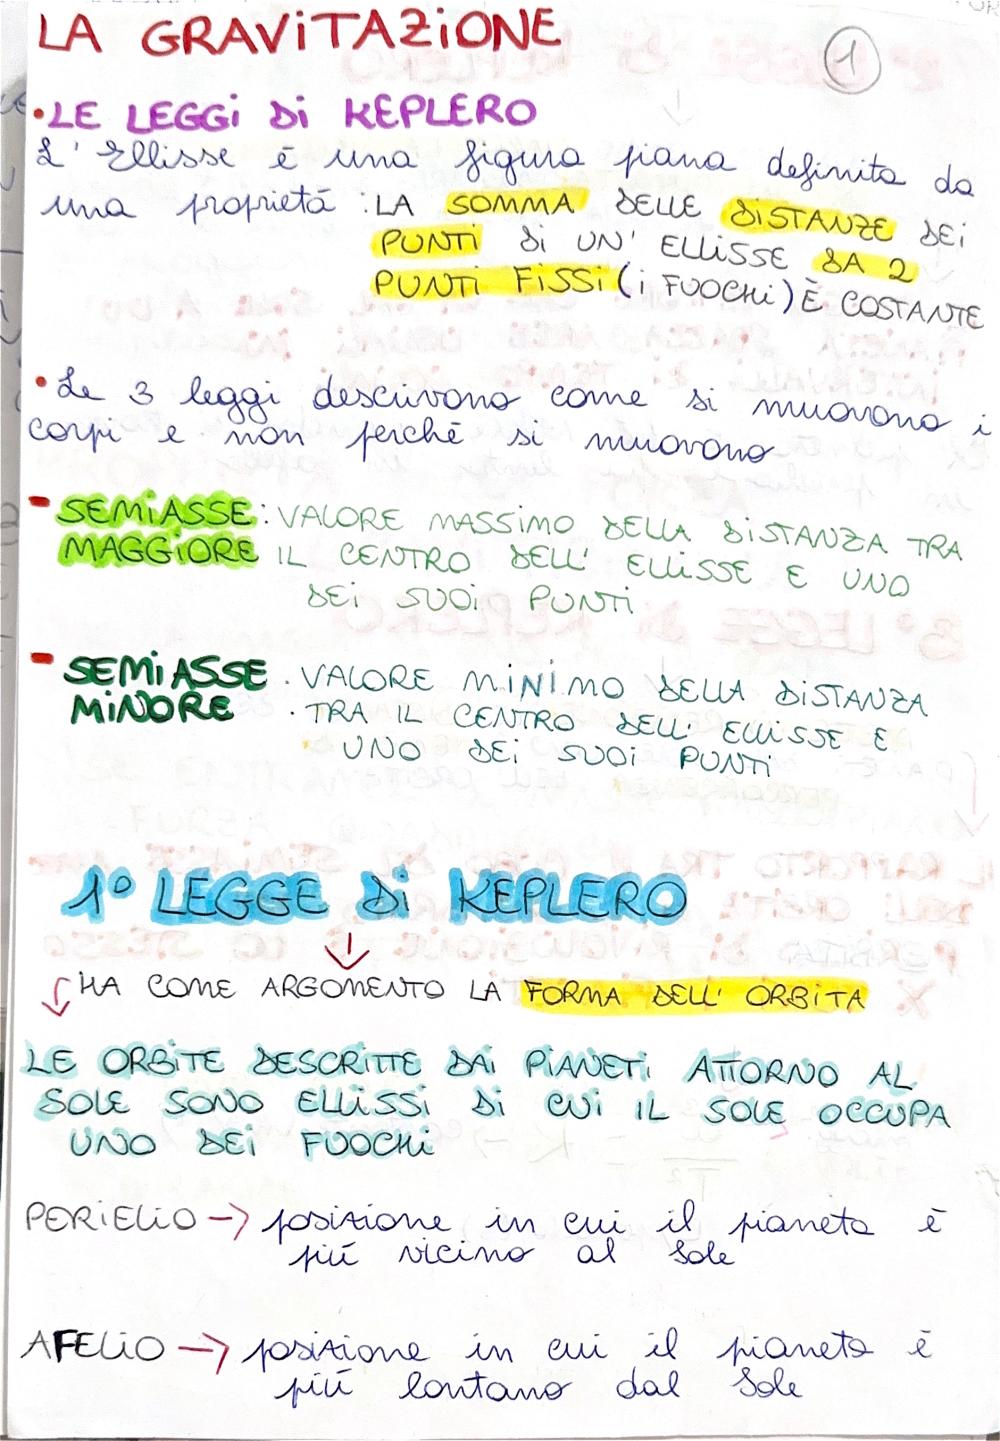 LA GRAVITAZIONE
1
• LE LEGGI DI KEPLERO
L' Ellisse è una figura piana definita da
una proprietà : LA SOMMA DELLE DISTANZE DEI
PUNTI DI UN' ELLISSE DA 2
PUNTI FISSI (i FUOCHI) È COSTANTE
• Le 3 leggi descrivono come si muovono i
corpi e non perché si muovono
- SEMIASSE : VALORE MASSIMO DELLA DISTANZA TRA
MAGGIORE IL CENTRO DELL' ELLISSE E UNO
DEI SUOI PUNTI
- SEMIASSE : VALORE MINIMO DELLA DISTANZA
MINORE TRA IL CENTRO DELL' ELLISSE E
UNO DEI SUOI PUNTI
1° LEGGE DI KEPLERO
HA COME ARGOMENTO LA FORMA DELL' ORBITA
LE ORBITE DESCRITTE DAI PIANETI ATTORNO AL
SOLE SONO ELLISSI DI CUI IL SOLE OCCUPA
UNO DEI FUOCHI
PERIELIO → posizione in cui il pianeta è
più vicino al Sole
AFELIO → posizione in cui il pianeta è
più lontano dal Sole